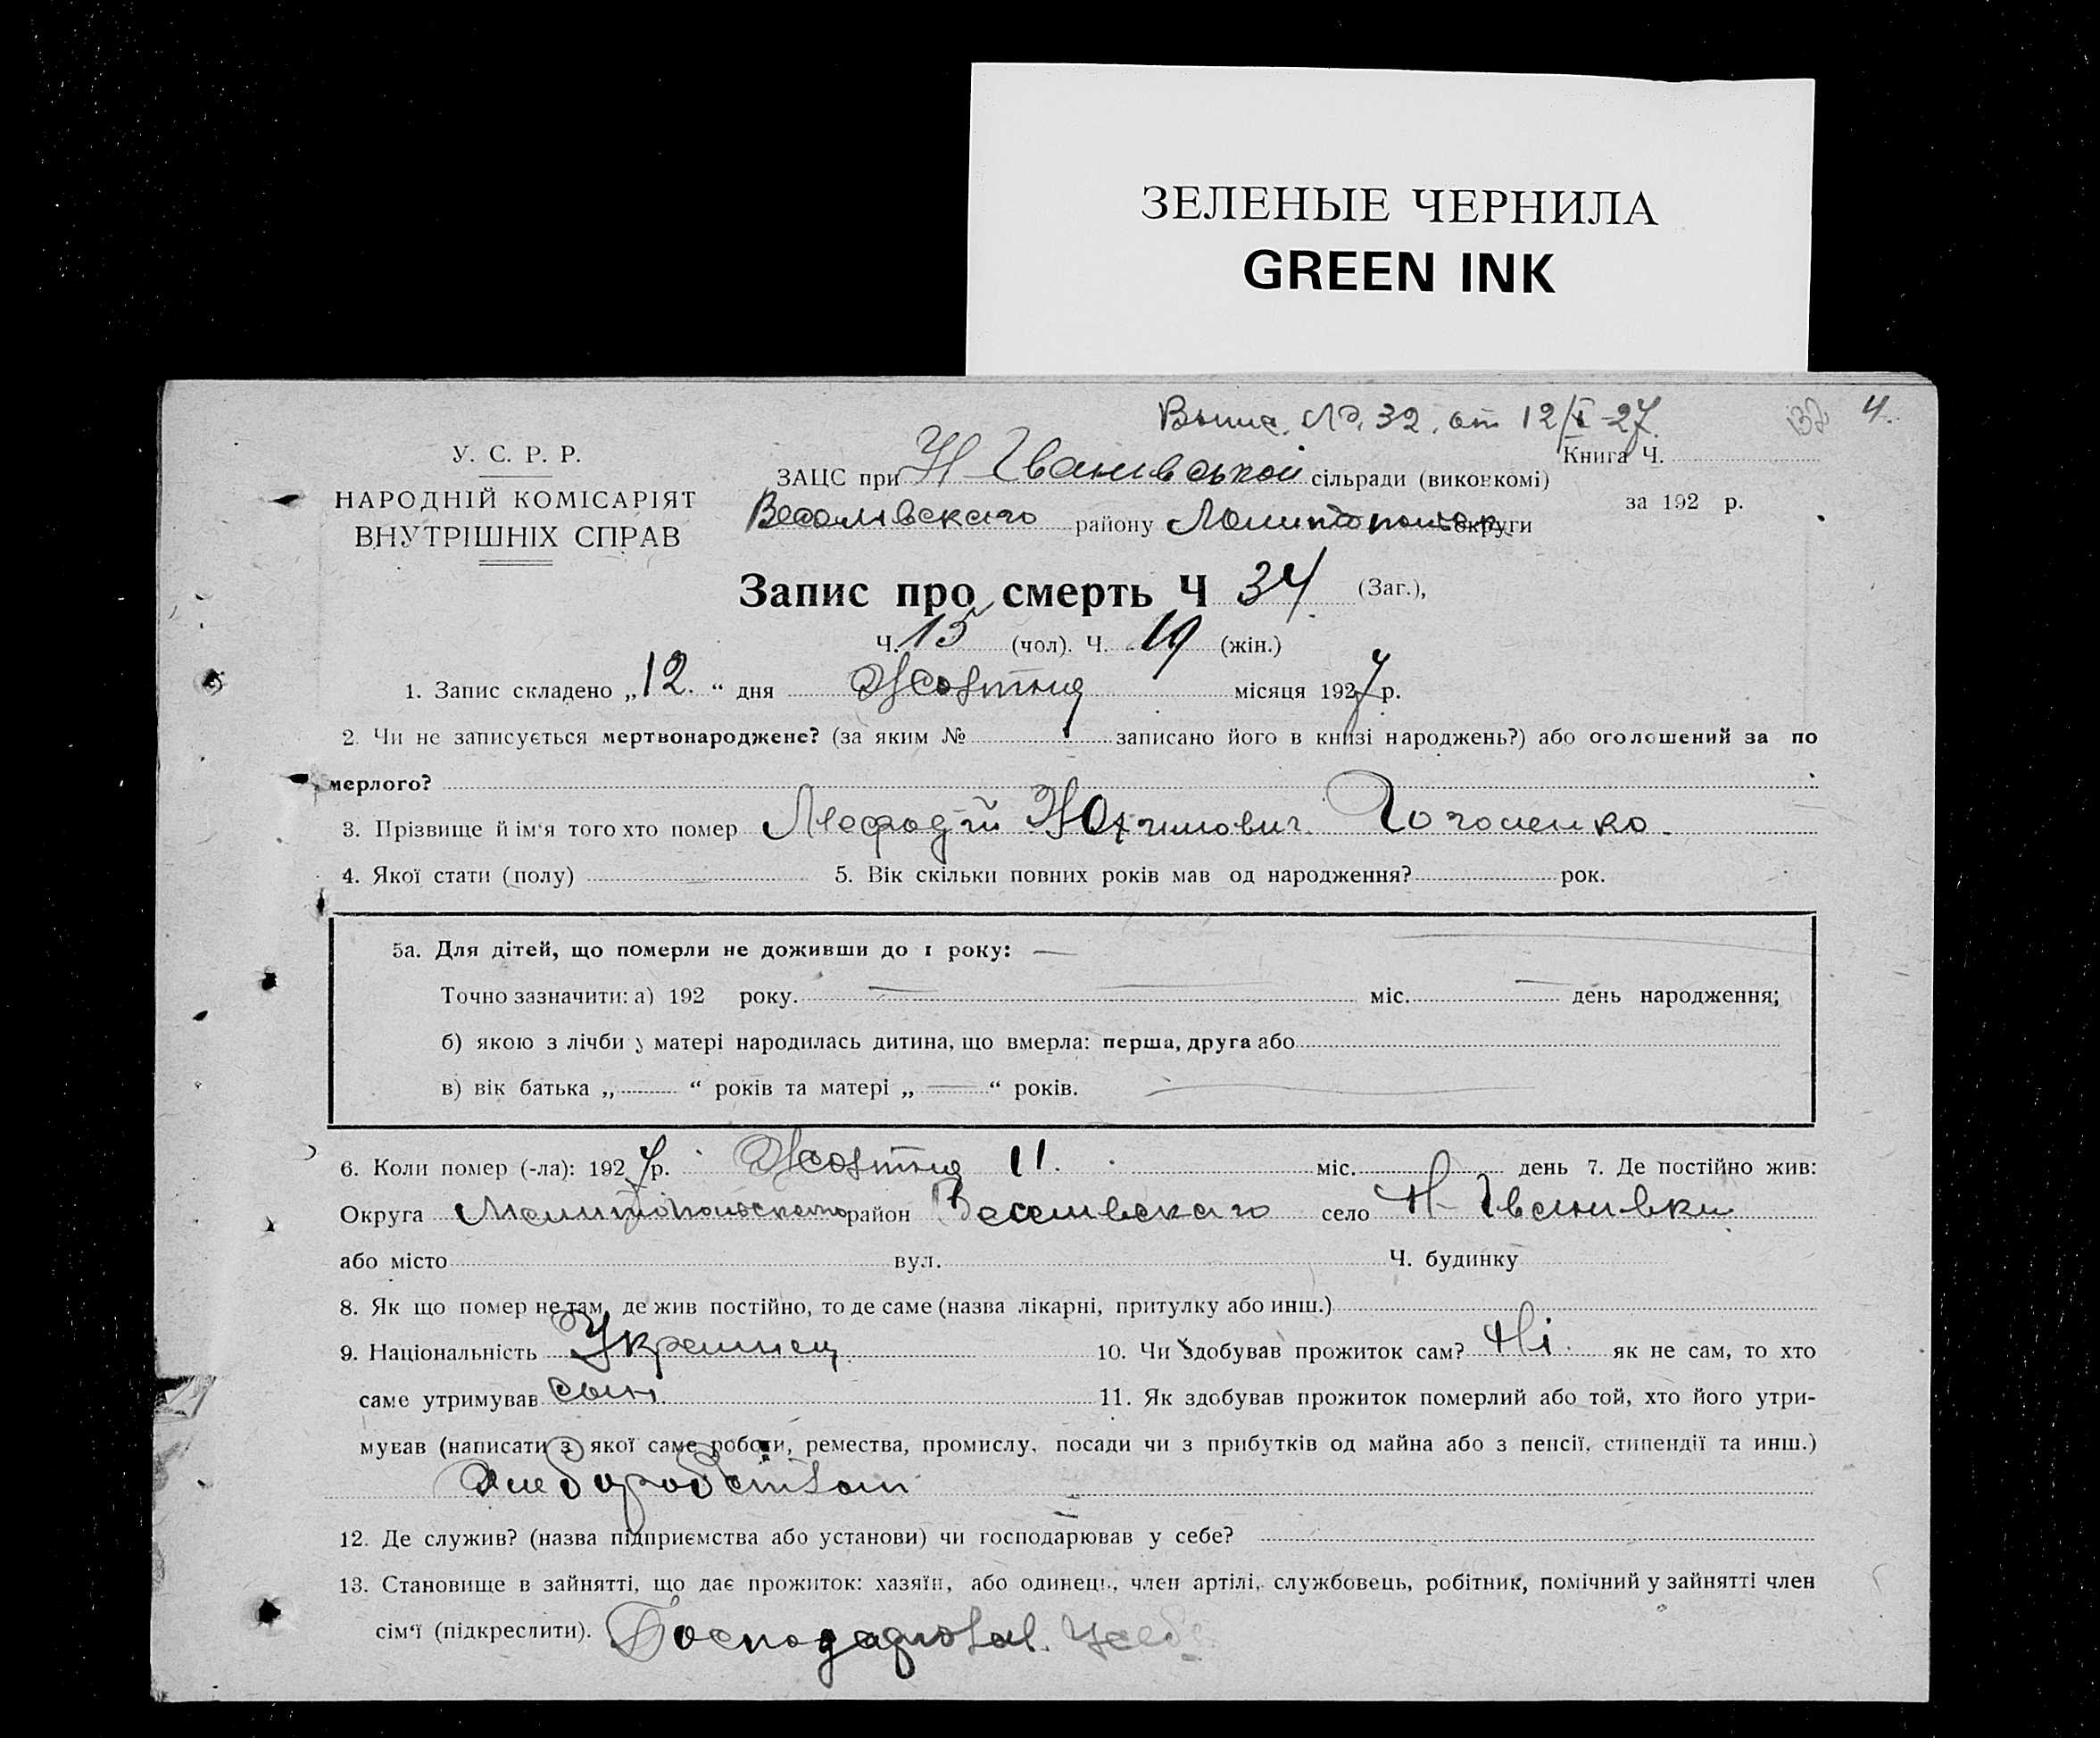 ЗЕЛЕНЫЕ ЧЕРНИЛА
GREEN INK
№ 32. от 12/X-27. 4.
У. С. Р. Р.
НАРОДНІЙ КОМІСАРІЯТ
ВНУТРІШНІХ СПРАВ
Книга Ч.
ЗАЦС при Н-Іванівської сільради (виконкомі)
за 192 р.
Веселівского району округи
Запис про смерть Ч 34 (Заг.),
Ч. 15 (чол). Ч. 19 (жін.)
1. Запис складено „12.“ дня Жовтня місяця 1927 р.
2. Чи не записується мертвонароджене? (за яким № записано його в книзі народжень?) або оголошений за по
мерлого?
3. Прізвище й ім'я того хто помер Мефодій Юхимович Гоголенко.
4. Якої стати (полу) 5. Вік скільки повних років мав од народження? рок.
5а. Для дітей, що померли не доживши до 1 року: —
Точно зазначити: а) 192 року. — міс. — день народження;
б) якою з лічби у матері народилась дитина, що вмерла: перша, друга або
в) вік батька „ “ років та матері „—“ років.
6. Коли помер (-ла): 1927 р. Жовтня 11. міс. день 7. Де постійно жив:
Округа Мелитопольского район Веселивского село Н-Іванивки
або місто вул. Ч. будинку
8. Як що помер не там, де жив постійно, то де саме (назва лікарні, притулку або инш.)
9. Національність Украинец. 10. Чи здобував прожиток сам? Ні. як не сам, то хто
саме утримував сын. 11. Як здобував прожиток померлий або той, хто його утри-
мував (написати з якої саме роботи, ремества, промислу, посади чи з прибутків од майна або з пенсії, стипендії та инш.)
Хлеборобством
12. Де служив? (назва підприємства або установи) чи господарював у себе?
13. Становище в зайнятті, що дає прожиток: хазяїн, або одинець, член артілі, службовець, робітник, помічний у зайнятті член
сім'ї (підкреслити). Господарював. у себе